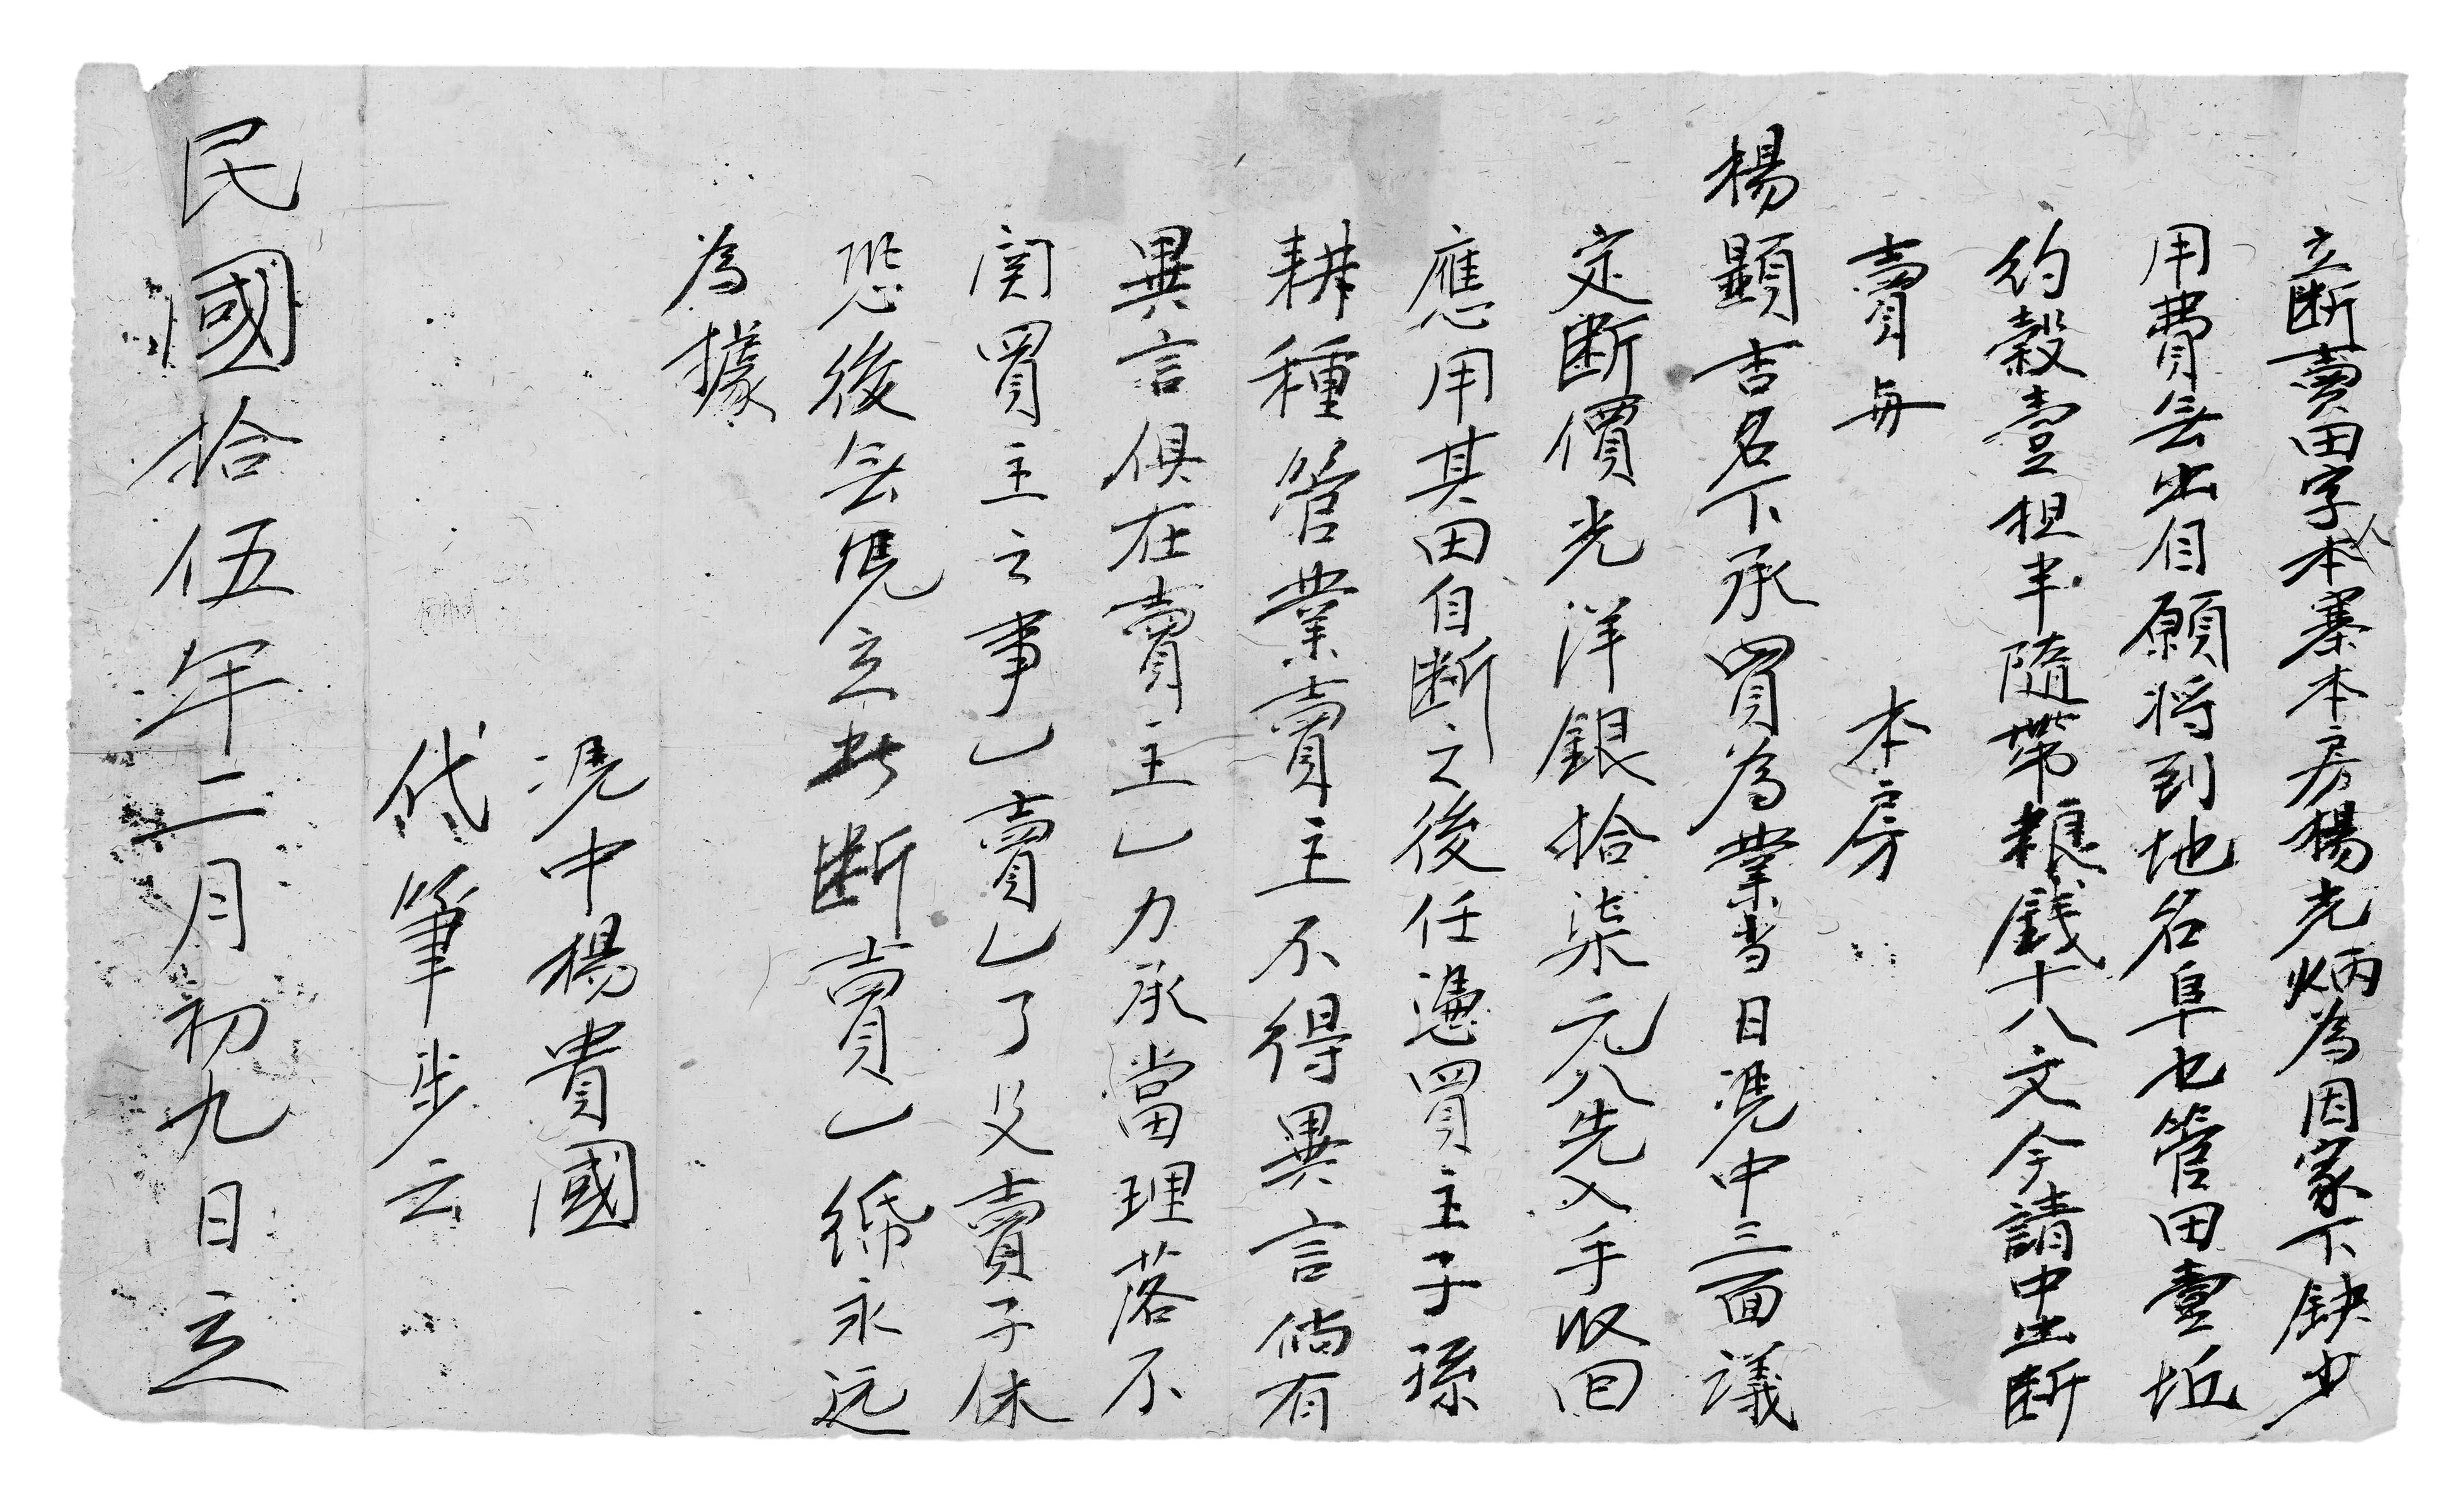 立断賣田字人本寨本房楊光炳為因家下缺少
用費無出自願将到地名阜也管田壹坵
約穀壹担半隨帶粮錢十八文今請中出断
賣与 本房
楊顯吉名下承買為業当日凴中三面議
定断價光洋銀拾柒元八先入手收回
應用其田自断之後任憑買主子孫
耕種管業賣主不得異言倘有
異言俱在賣主乚力承當理落不
関買主之事乚賣乚了父賣子休
恐後無凴立此断賣乚永远
為據
凴中楊貴國
代筆步云
民國拾伍年二月初九日立